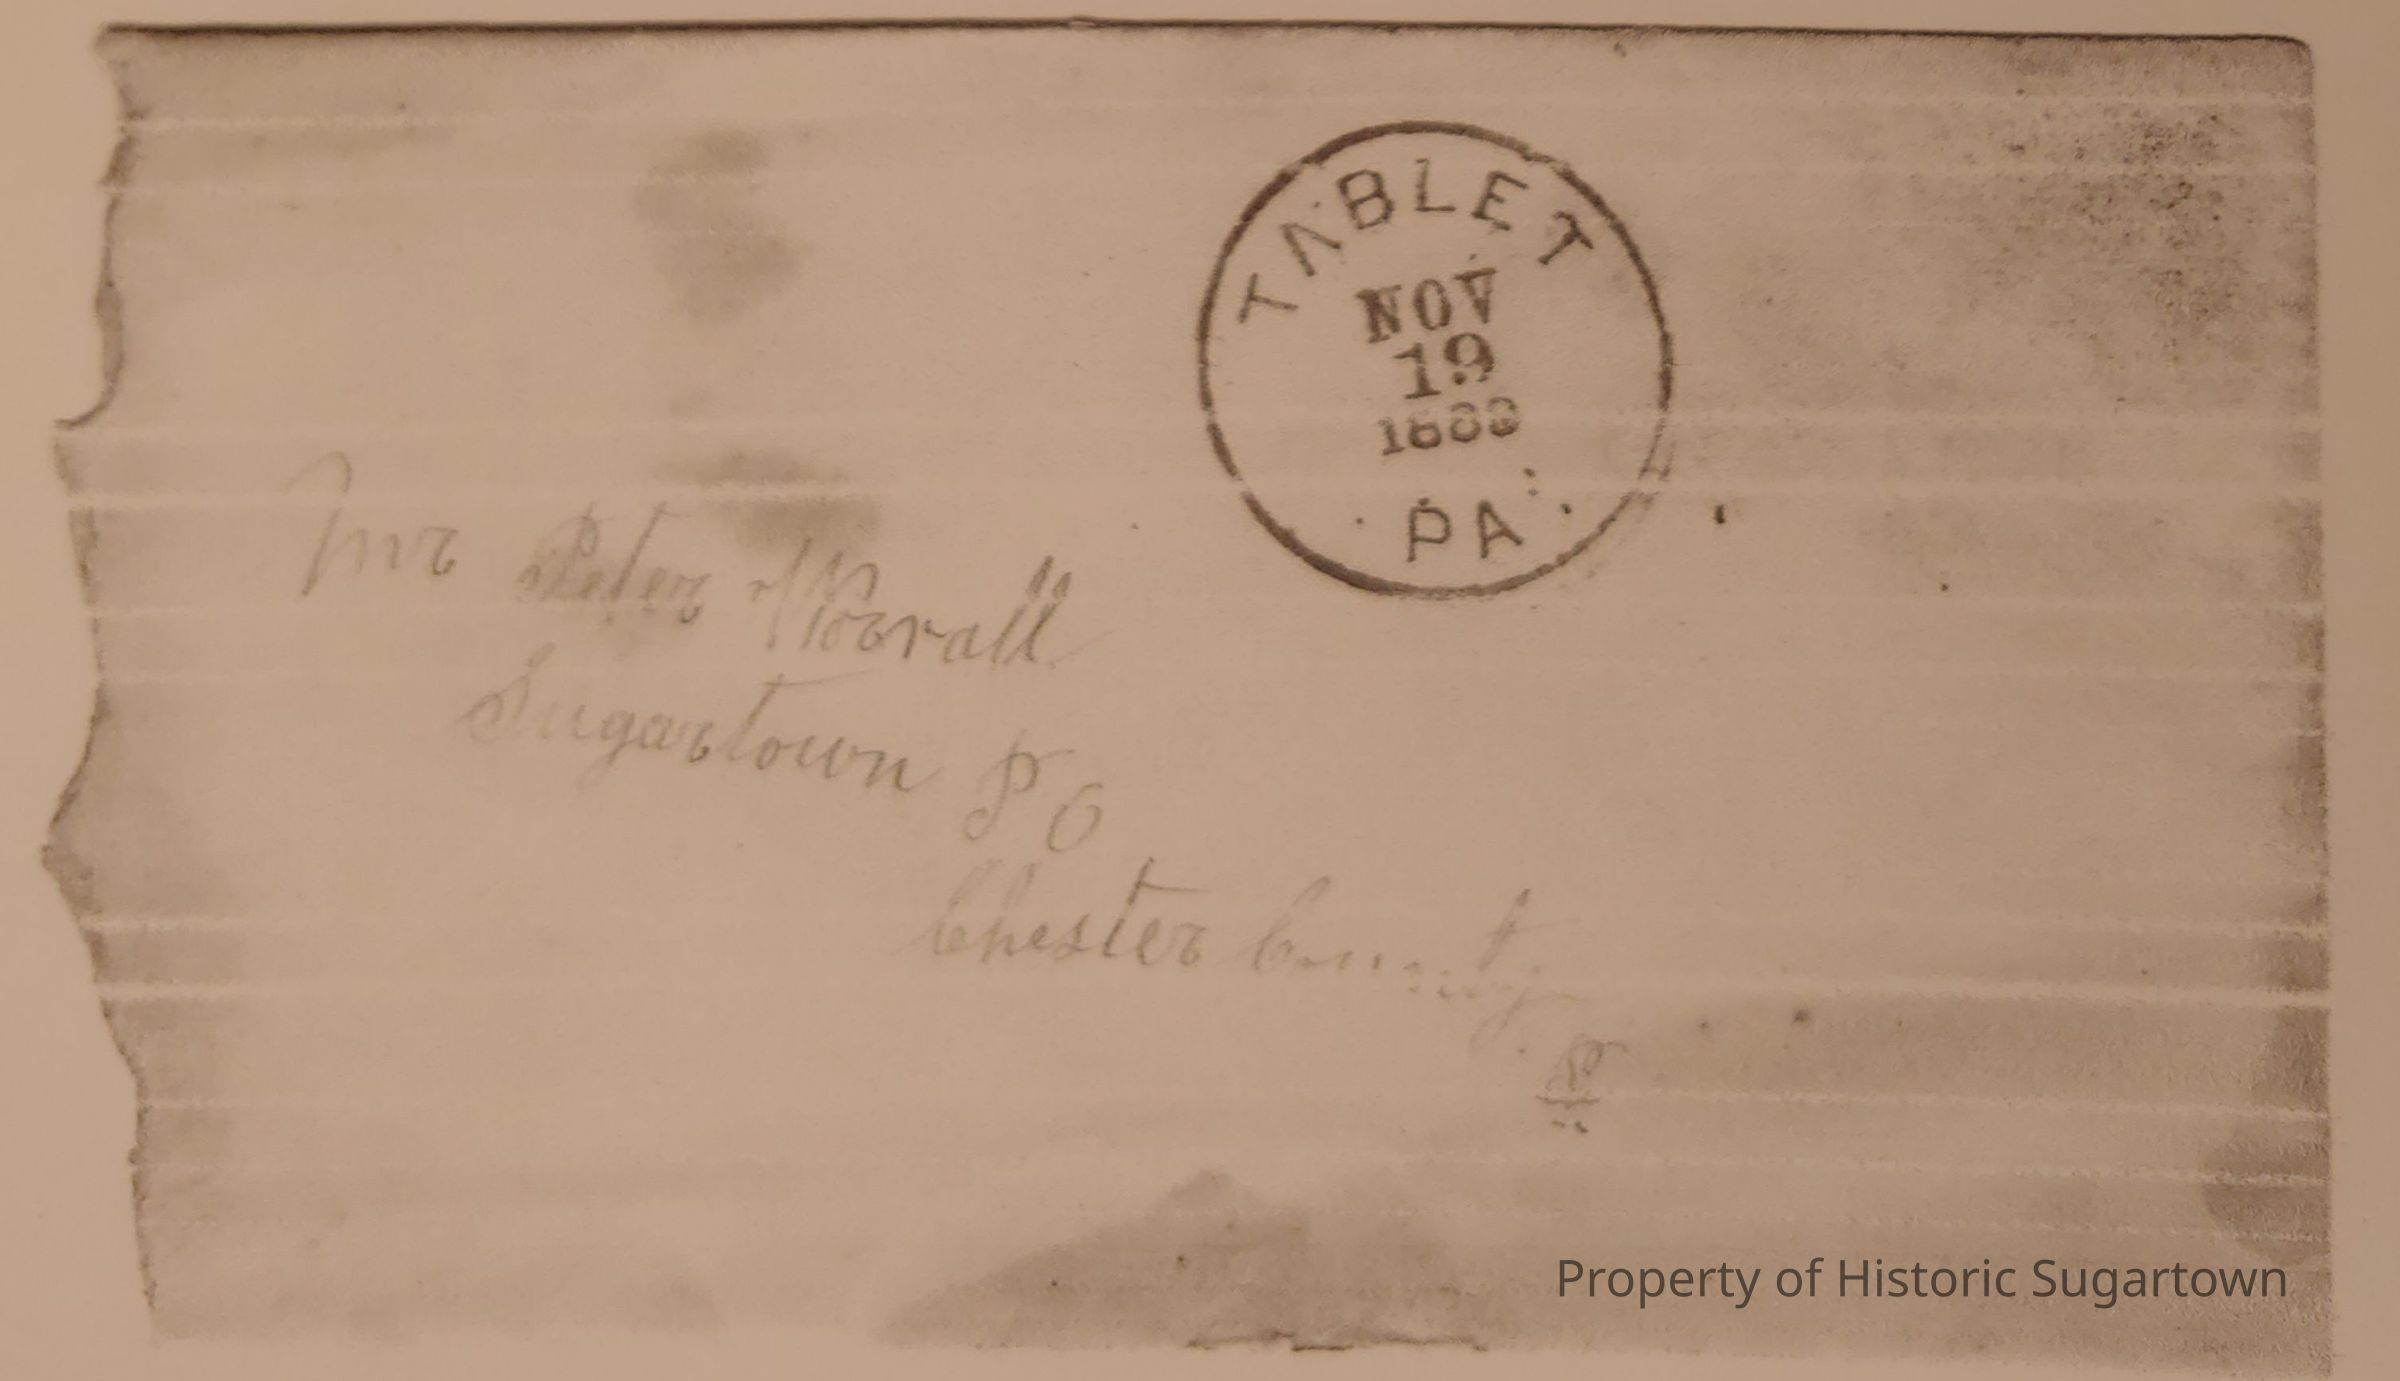 TABLET
NOV
19
1883
PA
Mr Peter Worrall
Sugartown P O
Chester County
Property of Historic Sugartown